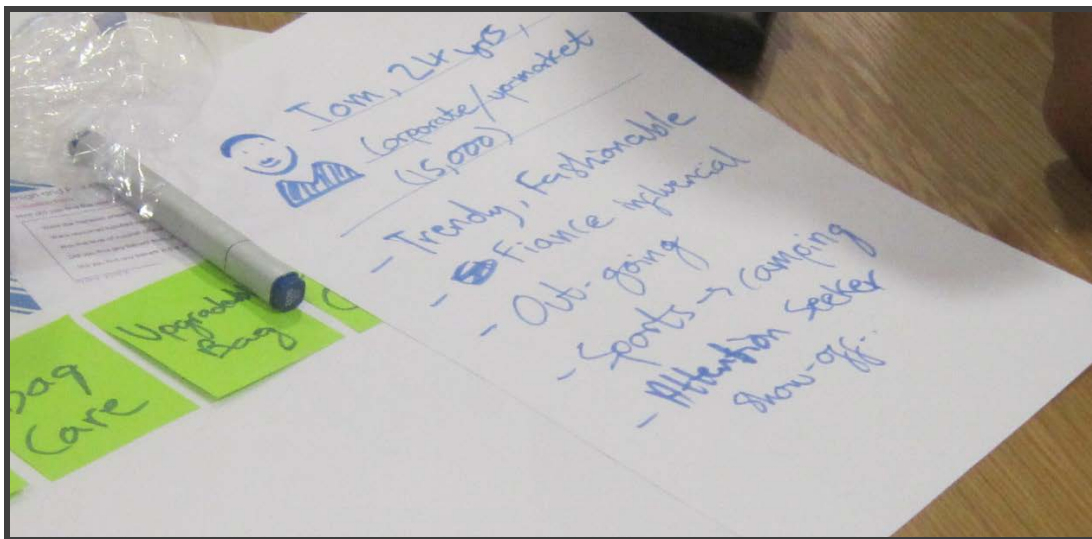 Tom, 24 yrs,
Corporate/up-market
(15,000)
- Trendy, Fashionable
- Fiance influencial
- Out-going
- Sports → camping
- Attention seeker
show-off.
Upgradable
Bag
Bag
Care